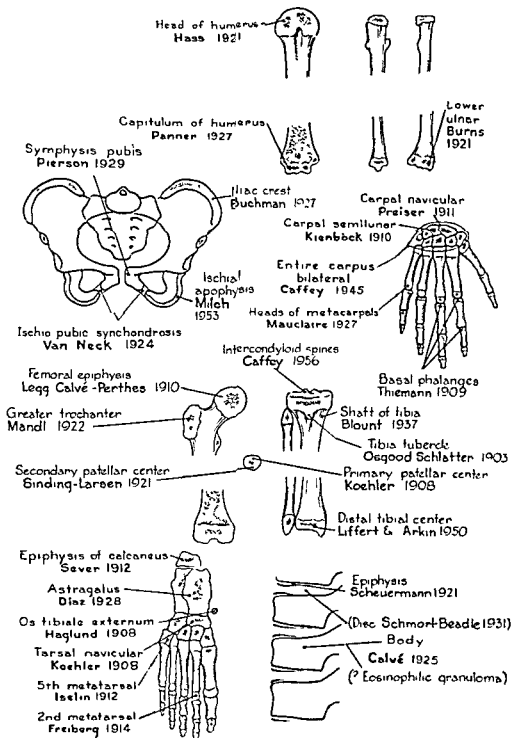 Head of humerus
Hass 1921
Capitulum of humerus
Panner 1927
Lower
ulnar
Burns
1921
Symphysis pubis
Pierson 1929
Iliac crest
Buchman 1927
Carpal navicular
Preiser 1911
Carpal semilunar
Kienböck 1910
Entire carpus
bilateral
Caffey 1945
Ischial
apophysis
Milch
1953
Heads of metacarpals
Mauclaire 1927
Ischio pubic synchondrosis
Van Neck 1924
Intercondyloid spines
Caffey 1956
Basal phalanges
Thiemann 1909
Femoral epiphysis
Legg Calvé-Perthes 1910
Greater trochanter
Mandl 1922
Shaft of tibia
Blount 1937
Tibia tubercle
Osgood Schlatter 1903
Secondary patellar center
Sinding-Larsen 1921
Primary patellar center
Koehler 1908
Distal tibial center
Liffert & Arkin 1950
Epiphysis of calcaneus
Sever 1912
Astragalus
Diaz 1928
Os tibiale externum
Haglund 1908
Tarsal navicular
Koehler 1908
5th metatarsal
Iselin 1912
2nd metatarsal
Freiberg 1914
Epiphysis
Scheuermann 1921
(Disc Schmorl-Beadle 1931)
Body
Calvé 1925
(? Eosinophilic granuloma)